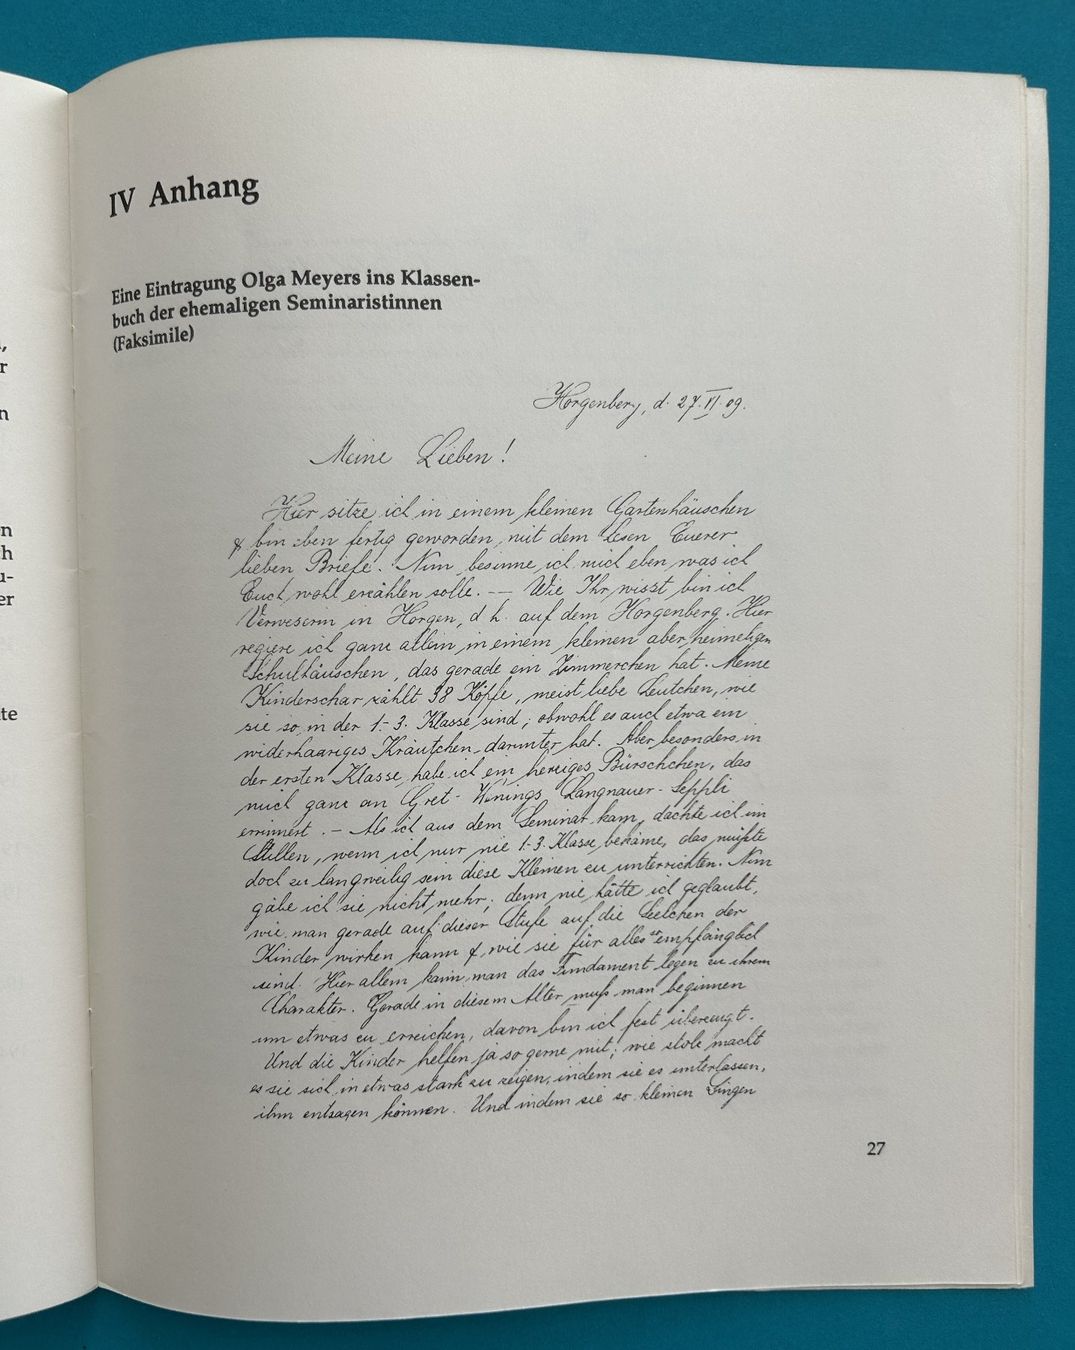 ,
r
n
n
ch
u-
er
te
IV Anhang
Eine Eintragung Olga Meyers ins Klassen-
buch der ehemaligen Seminaristinnen
(Faksimile)
Horgenberg, d. 27. VI 09.
Meine Lieben!
Hier sitze ich in einem kleinen Gartenhäuschen
& bin eben fertig geworden, mit dem Lesen Euerer
lieben Briefe. Nun besinne ich mich eben was ich
Euch wohl erzählen solle. -- Wie Ihr wisst bin ich
Verweserin in Horgen, d h. auf dem Horgenberg. Hier
regiere ich ganz allein in einem kleinen aber heimeligen
Schulhäuschen, das gerade ein Zimmerchen hat. Meine
Kinderschar zählt 38 Köpfe, meist liebe Leutchen, wie
sie so in der 1-3. Klasse sind; obwohl es auch etwa ein
widerhaariges Kräutchen darunter hat. Aber besonders in
der ersten Klasse habe ich ein herziges Bürschchen, das
mich ganz an Gret Langnauer-Seppli
erinnert. - Als ich aus dem Seminar kam, dachte ich im
Stillen, wenn ich nur nie 1-3. Klasse bekäme, das müsste
doch zu langweilig sein diese Kleinen zu unterrichten. Nun
gäbe ich sie nicht mehr; denn nie hätte ich geglaubt,
wie man gerade auf dieser Stufe auf die Seelchen der
Kinder wirken kann &, wie sie für alles so empfänglich
sind. Hier allem kann man das Fundament legen zu ihrem
Charakter. Gerade in diesem Alter muß man beginnen
um etwas zu erreichen, davon bin ich fest überzeugt.
Und die Kinder helfen ja so gerne mit; wie stolz macht
es sie sich in etwas stark zu zeigen, indem sie es unterlassen,
ihm entsagen können. Und indem sie so kleinen Dingen
27